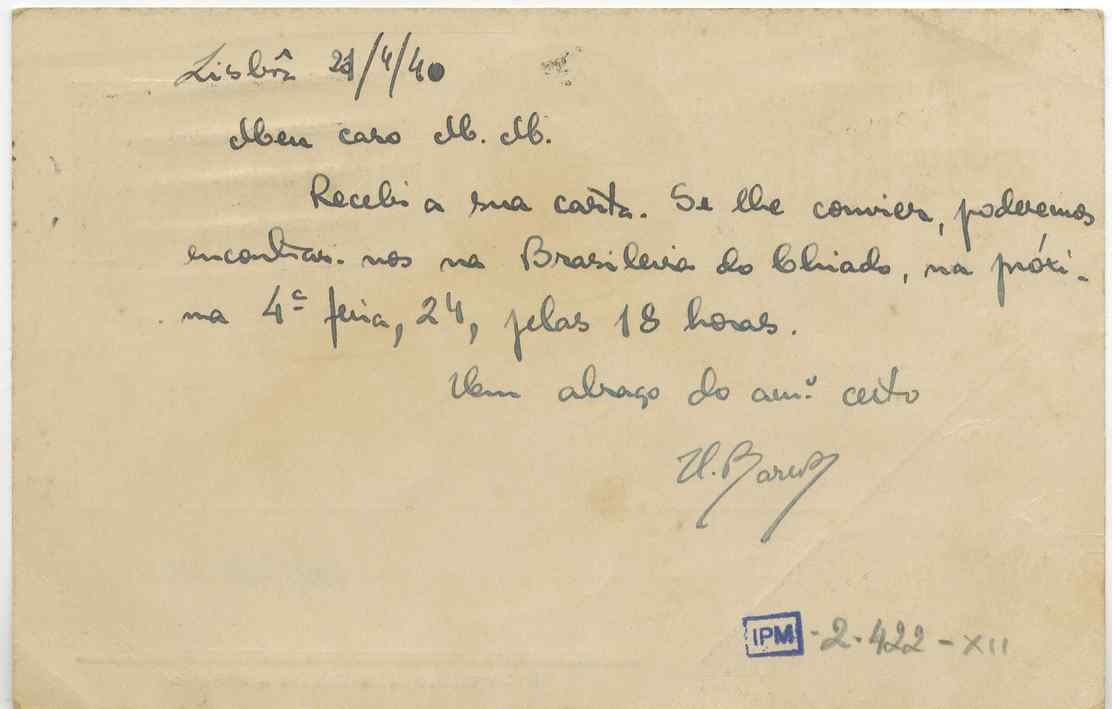 Lisbôa 21/4/40
Meu caro M. M.
Recebi a sua carta. Se lhe convier, poderemos
encontrar-nos na Brasileira do Chiado, na próxi-
ma 4ª feira, 24, pelas 18 horas.
Um abraço do am.º certo
H. Barros
IPM - 2-422-XII